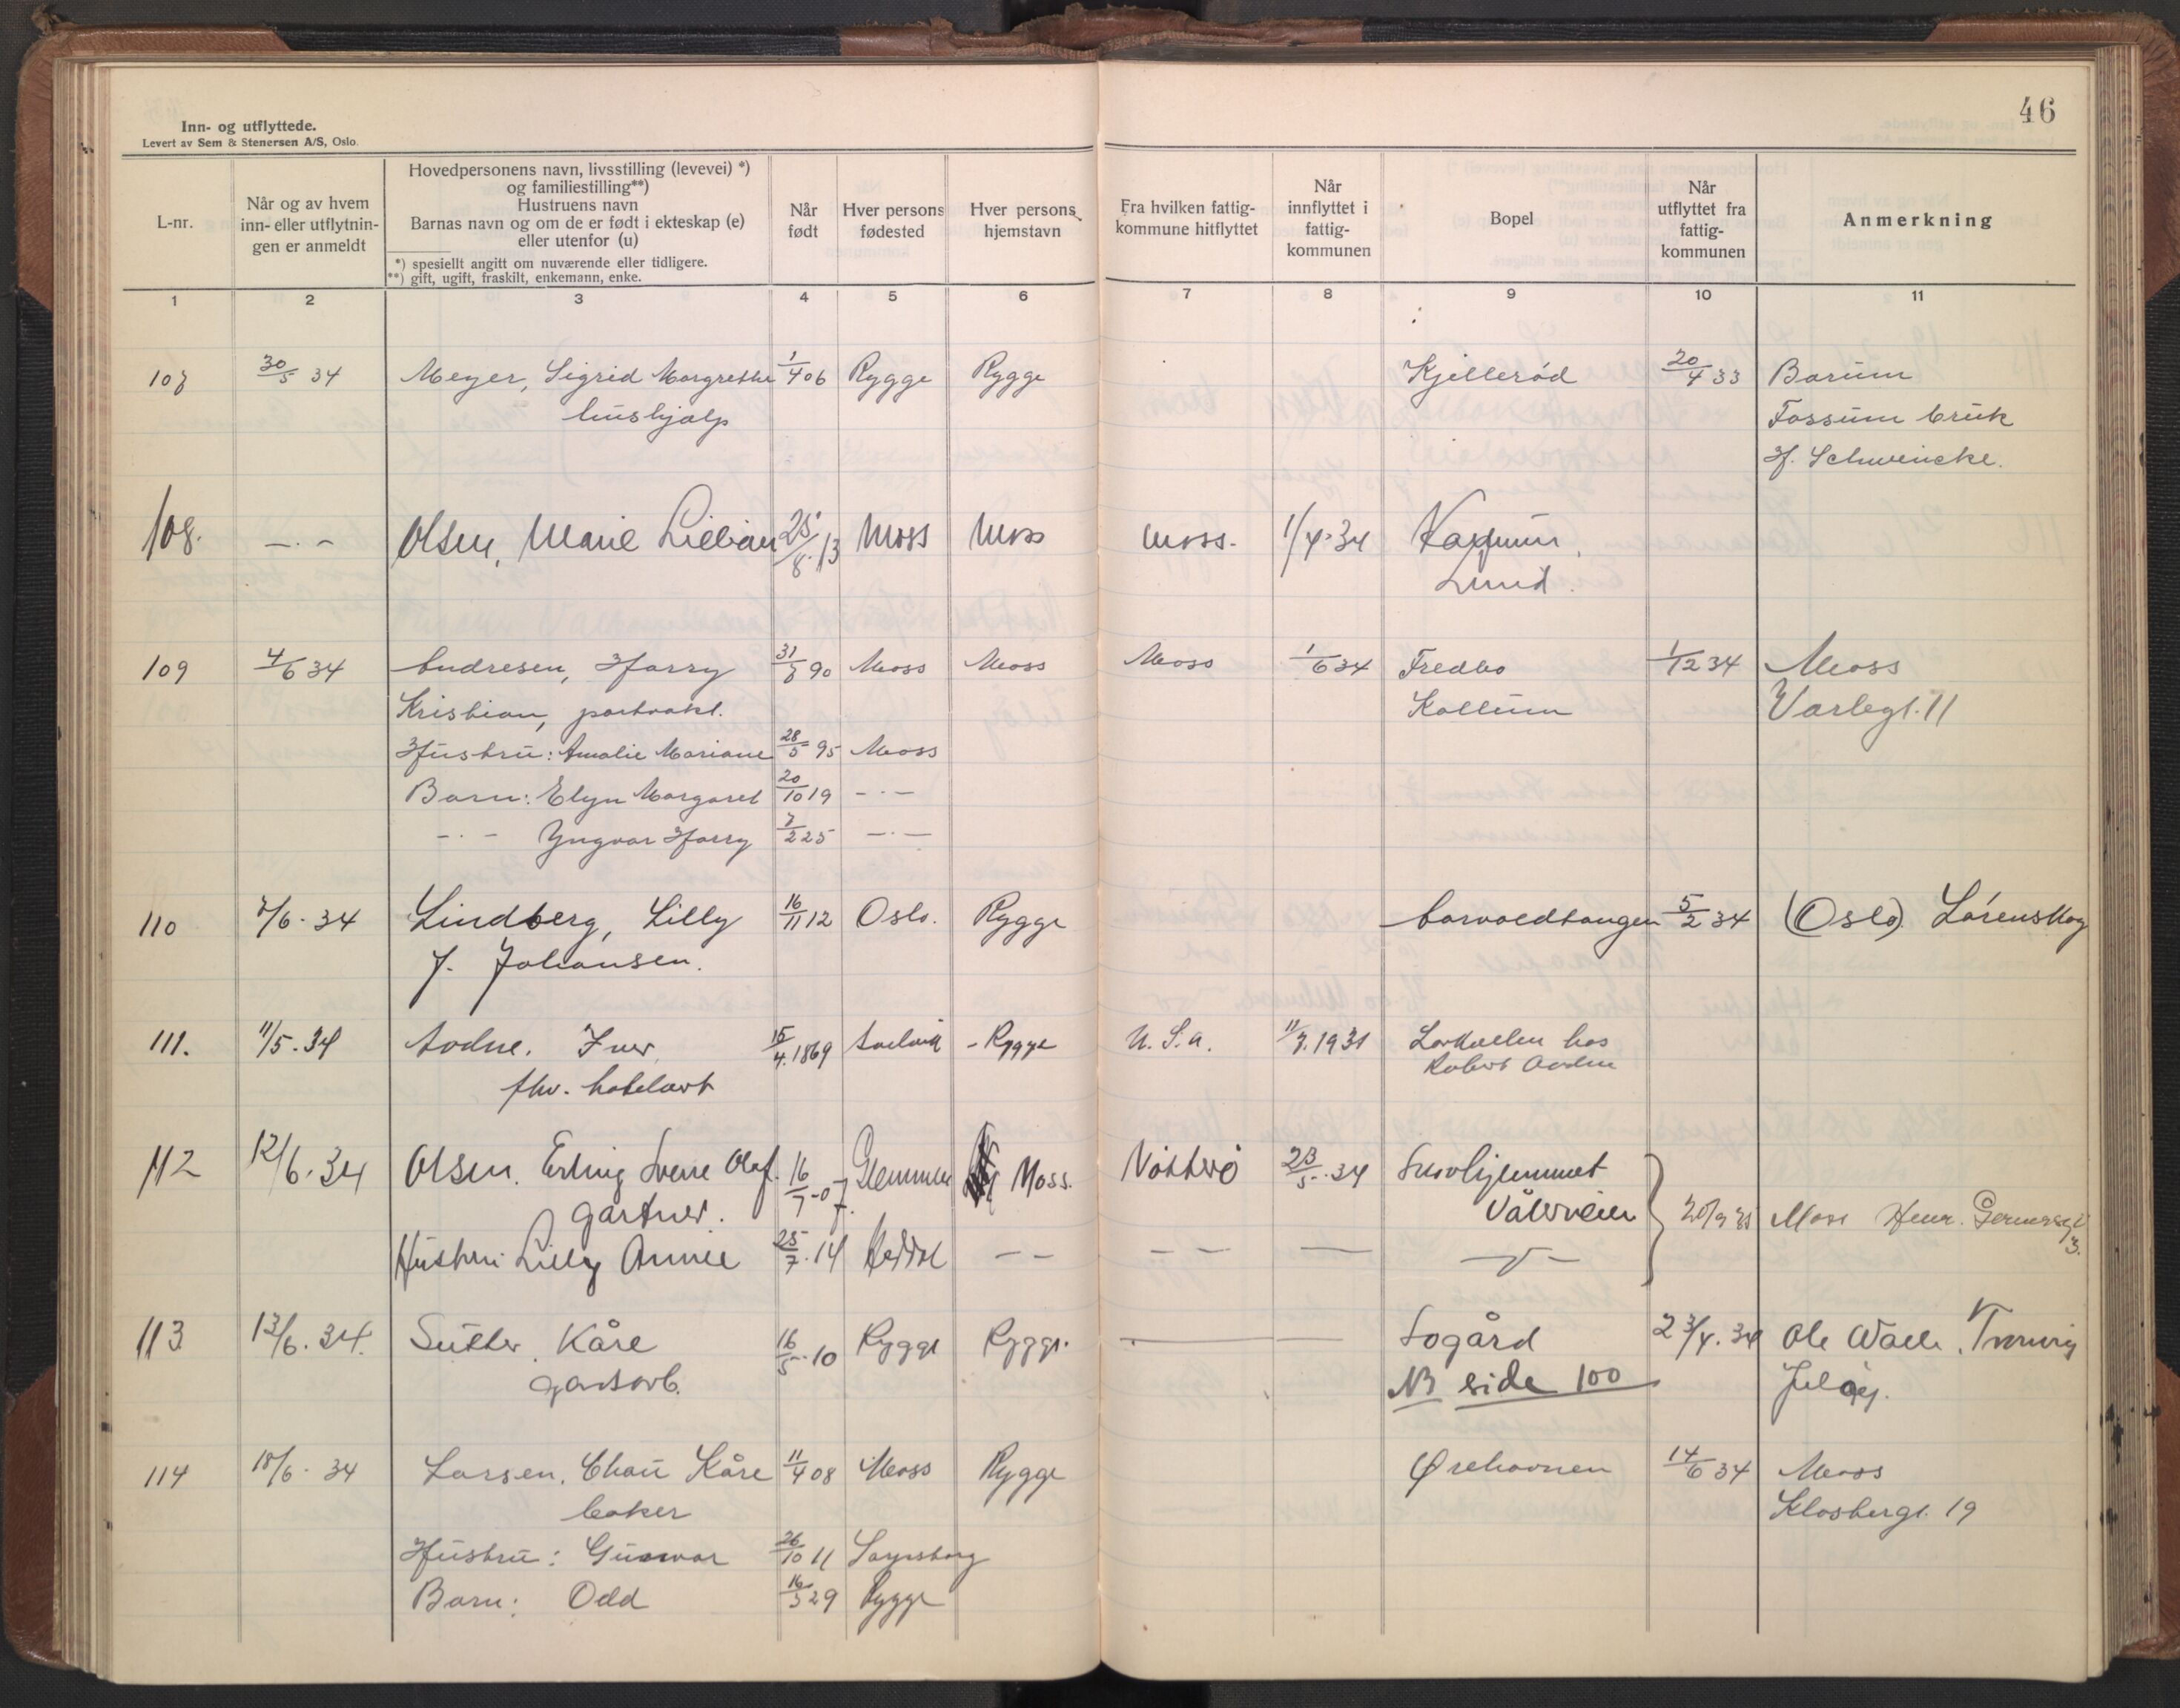 46
Inn- og utflyttede.
Levert av Sem & Stenersen A/S, Oslo.
L-nr.
Når og av hvem inn- eller utflytnin-gen er anmeldt
Hovedpersonens navn, livsstilling (levevei) *)
og familiestilling**)
Hustruens navn
Barnas navn og om de er født i ekteskap (e)
eller utenfor (u)
*) spesiellt angitt om nuværende eller tidligere.
**) gift, ugift, fraskilt, enkemann, enke.
Når født
Hver persons fødested
Hver persons hjemstavn
Fra hvilken fattig-kommune hitflyttet
Når innflyttet i fattig-kommunen
Bopel
Når utflyttet fra fattig-kommunen
Anmerkning
1 2 3 4 5 6 7 8 9 10 11
107 30/5 34 Meyer, Sigrid Margrethe 1/4 06 Rygge Rygge Kjellerød 20/4 33 Barüm
hüshjalp Fossüm brük
H. Schwencke.
108. —.— Olsen, Marie Lillian 25/8.13 Moss Moss Moss. 1/4.34
Lund.
109 4/6 34 Andresen, Harry 31/8 90 Moss Moss Moss 1/6 34 Fredbo 1/12 34 Moss
Kristian, portvakt. Kallüm Varlegt. 11
Hüstrü: Amalie Mariane 28/5 95 Moss
Barn: Elyn Margaret 20/10 19 —.—
—.— Yngvar Harry 7/2 25 —.—
110 7/6. 34 Lindberg, Lilly 16/11 12 Oslo. Rygge Carvoldtangen 5/2 34 (Oslo) Lørenskog
f. Johansen.
111. 11/5. 34 Aodne. Iver 15/4. 1869 - Rygge U. S. a. 11/7. 1931 Larkollen hos
fhv. hotelvert Robert Aodne
112 12/6. 34 Olsen. Erling Sverre Olaf. 16/7-07. Glemmen Moss. Nøtterø 23/5. 34 Snovhjemmet
gartner. Vålerveien 20/9 35 Moss Henr. Gernersgt
3.
Hustru Lilly Annie 25/7. 14 Heddal — — — — —
113 13/6. 34. Sütter. Kåre 16/5. 10 Rygge Rygge. — — Sogård 23/4. 34 Ole Walle. Tronvig
gartarb. NB side 100 Jeløy.
114 18/6. 34 Larsen. Chau Kåre 11/4 08 Moss Rygge Ørehavnen 14/6 34 Moss
baker Klosbergt. 19
Hüstrü: Gunvor 26/10 11 Sarpsborg
Barn: Odd 16/5 29 Rygge